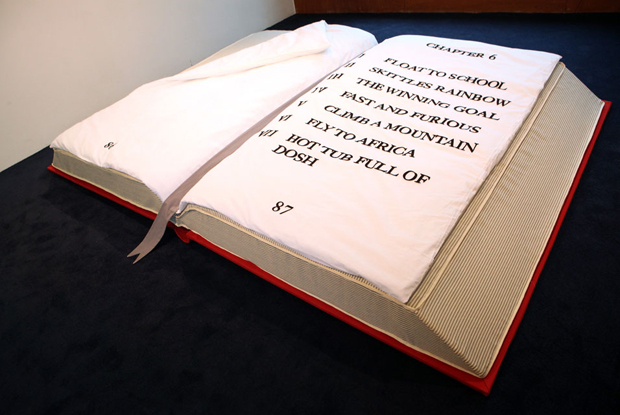 CHAPTER 6
I FLOAT TO SCHOOL
II SKITTLES RAINBOW
III THE WINNING GOAL
IV FAST AND FURIOUS
V CLIMB A MOUNTAIN
VI FLY TO AFRICA
VII HOT TUB FULL OF
DOSH
87